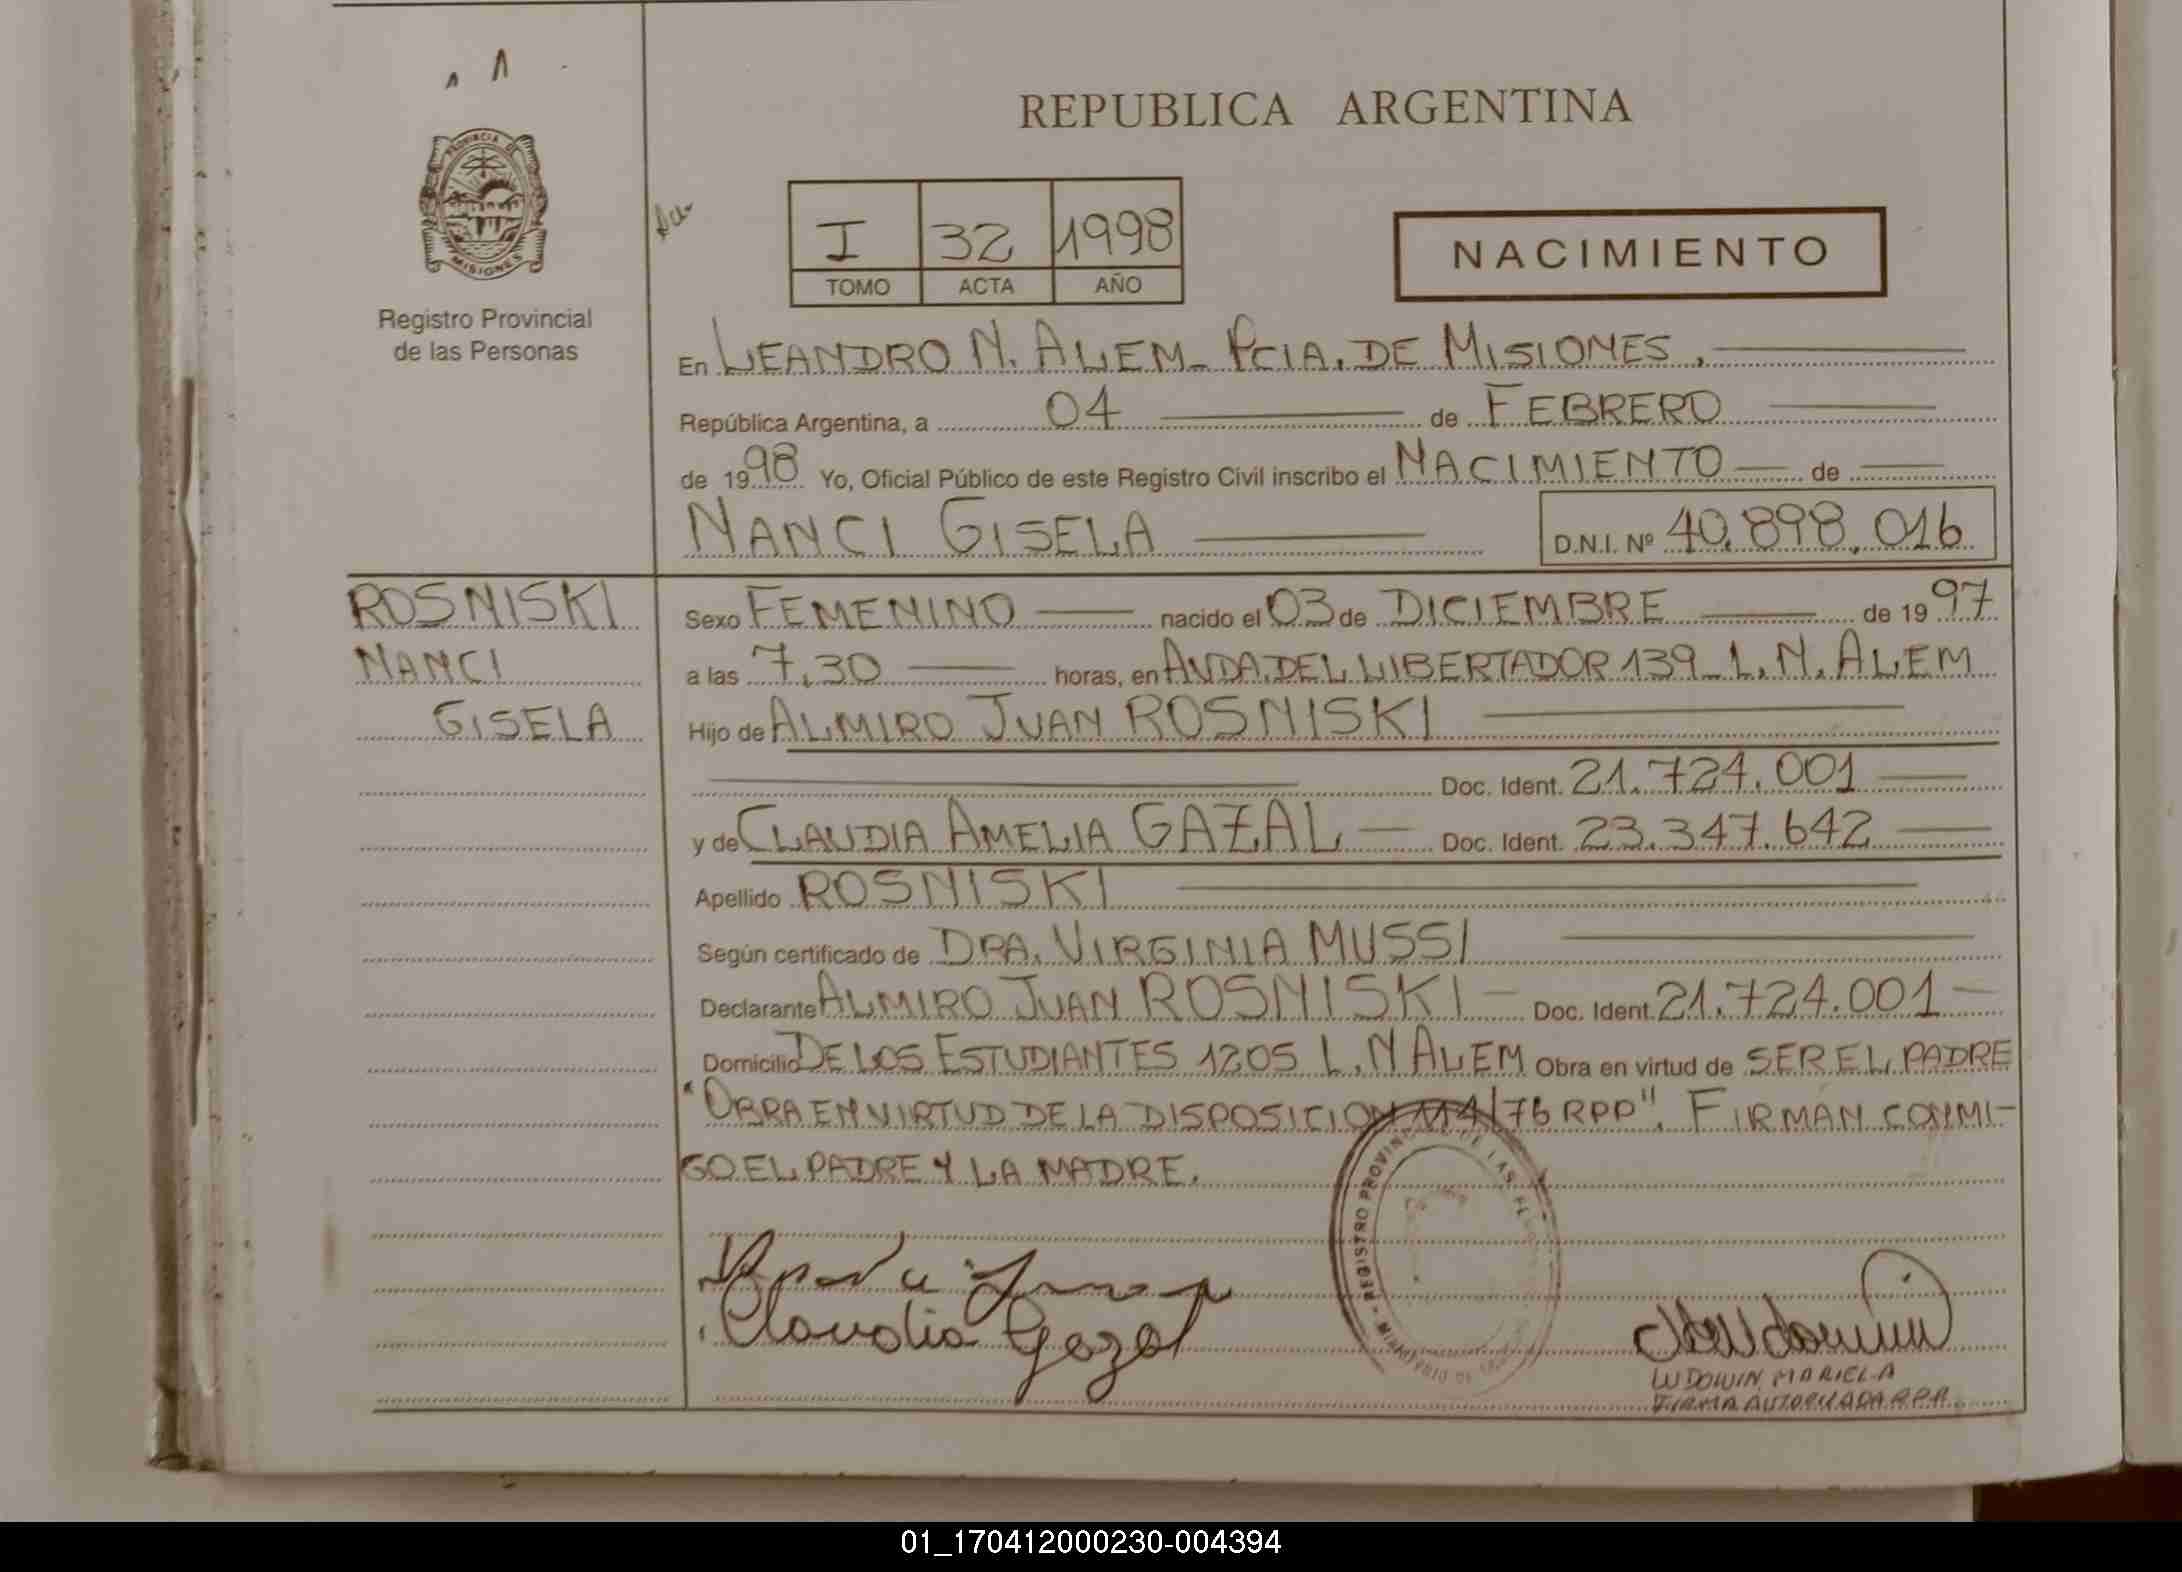 REPUBLICA ARGENTINA
PROVINCIA DE
MISIONES
Registro Provincial
de las Personas
I 32 1998
TOMO ACTA AÑO
NACIMIENTO
En LEANDRO N. ALEM - PCIA. DE MISIONES.
República Argentina, a 04 de FEBRERO
de 1998 Yo, Oficial Público de este Registro Civil inscribo el NACIMIENTO de
NANCI GISELA D.N.I. Nº 40.898.016
ROSNISKI
NANCI
GISELA
Sexo FEMENINO nacido el 03 de DICIEMBRE de 1997
a las 7.30 horas, en AVDA. DEL LIBERTADOR 139 - L. N. ALEM
Hijo de ALMIRO JUAN ROSNISKI
Doc. Ident. 21.724.001
y de CLAUDIA AMELIA GAZAL Doc. Ident. 23.347.642
Apellido ROSNISKI
Según certificado de DRA. VIRGINIA MUSSI
Declarante ALMIRO JUAN ROSNISKI Doc. Ident. 21.724.001
Domicilio DE LOS ESTUDIANTES 1205 L. N ALEM Obra en virtud de SER EL PADRE
"OBRA EN VIRTUD DE LA DISPOSICION 114/76 RPP". FIRMAN CONMI-
GO EL PADRE Y LA MADRE.
REGISTRO PROVINCIAL DE LAS
Claudia Gazal
LUDOWIN MARIELA
FIRMA AUTORIZADA R.P.P.
01_170412000230-004394